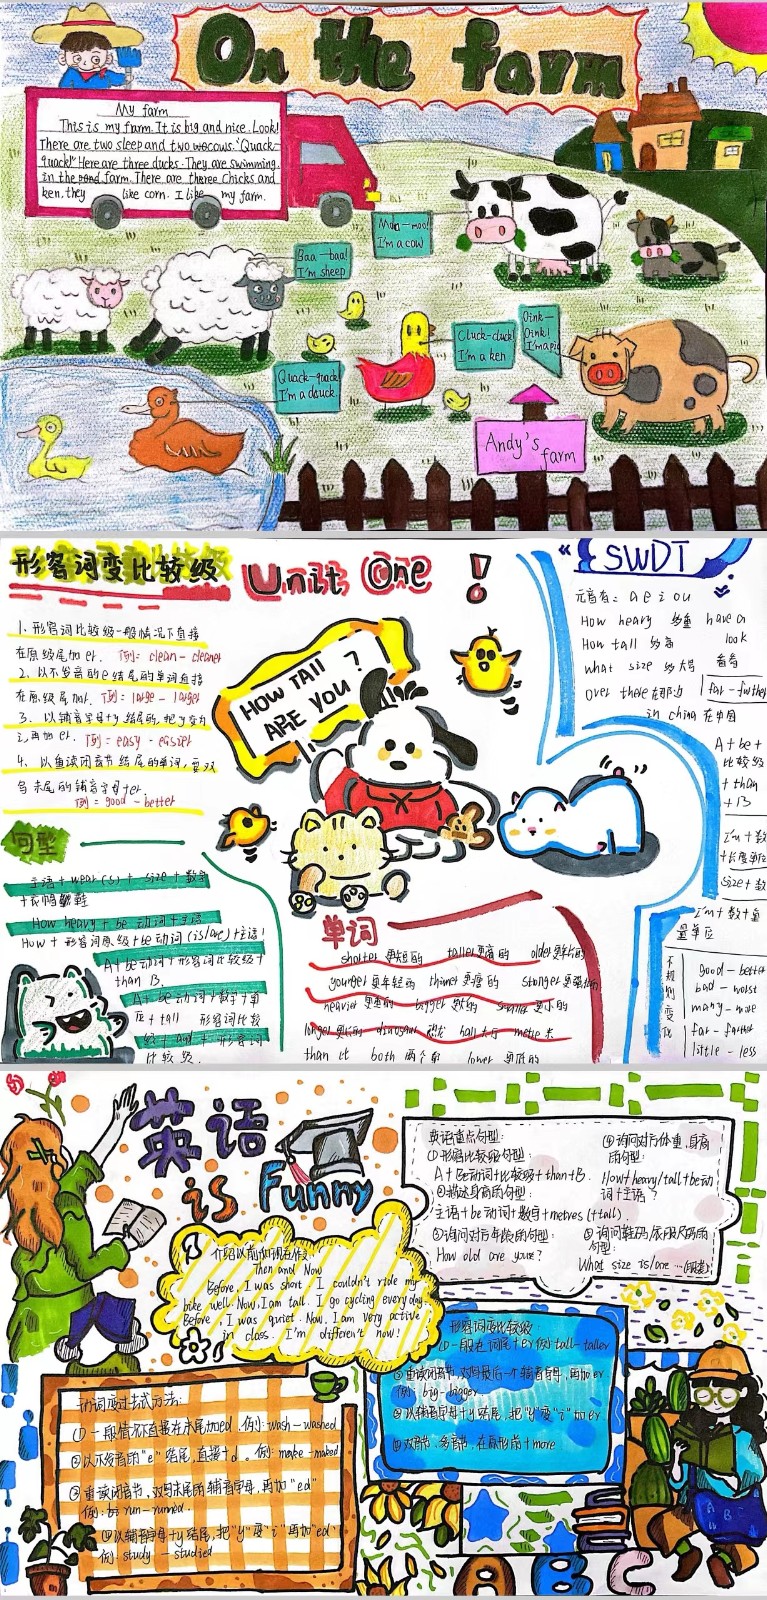 On the farm
My farm
This is my frarm. It is big and nice. Look!
There are two sleep and two cows. "Quack-
quack!" Here are three ducks. They are swimming.
in the farm. There are three Chicks and
ken. they like corn. I like my farm.
Moo-moo!
I'm a cow
Baa-baa!
I'm sheep
Oink-
Oink!
I'm a pig
Cluck-cluck!
I'm a ken
Quack-quack!
I'm a duck.
Andy's
farm
形容词变比较级
Unit One
!
1、形容词比较级一般情况下直接
在原级尾加er. 例=clean-cleaner
2、以不发音的e结尾的单词直接
在原级尾加r. 例=large-larger
3、以辅音字母+y结尾的,把y变为
i,再加er. 例=easy-easier
4、以重读闭音节结尾的单词,要双
写末尾的辅音字母+er.
例=good-better
句型
主语+wear(s)+size+数字
How heavy+be动词+主语
How+形容词原级+be动词(is/are)+主语!
A+be动词+形容词比较级+
than B.
A+be动词+数字+单
位+tall 形容词比较
比较级.
HOW TAll
ARE YOU?
SWDT
元音有: a e i o u
How heary 多重
have a
look
看看
How tall 多高
what size 多大号
over there在那边
in china 在中国
far-further
A+be+
比较级
+than
+B
I'm+数
+长度单位
size+数
I'm+数+重
量单位
不规则变化
good-better
bad-worst
many-more
far-farther
little-less
单词
shorter 更短的 taller更高的 older更年长的
younger更年轻的 thiner更瘦的 stonger更强壮的
heavier更重的 bigger更大的 smaller更小的
longer更长的 dinosaur恐龙 hall大厅 metre米
than比 both两个都 lower更低的
英语
is Funny
介绍以前和如现在作文
Then and Now
Before, I was short. I couldn't ride my
bike well. Now, I am tall. I go cycling every day
Before, I was quiet. Now, I am very active
in class. I'm different now!
英语重点句型:
①形容比较级句型:
A+Be动词+比较级+than+B.
②描述身高的句型:
主语+be动词+数字+metres (+tall).
③询问对方年龄的句型:
How old are you?
④询问对方体重,身高
的句型:
How+heary/tall+be动
词+主语?
⑤询问鞋码/衣服尺码的
句型:
What size is/are
形容词变比较级:
①一般在词尾+er 例:tall-taller
②重读闭音节,双写最后一个辅音字母,再加er
例:big-bigger
③以辅音字母+y结尾,把"y"变"i"加er
④双音节、多音节,在原形前+more
动词变过去式方法:
①一般情况直接在末尾加ed. 例:wash-washed
②以不发音的"e"结尾,直接+d. 例:make-maked
③重读闭音节,双写末尾的辅音字母,再加"ed"
例:run-runned.
④以辅音字母+y结尾,把"y"变"i"再加"ed"
例:study-studied
A B C